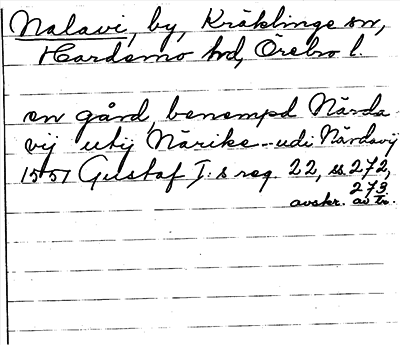 Nalavi, by, Kräklinge sn,
Hardemo hd, Örebro l.
en gård, benempd Närda
vij utij Närike -- udi Närdavij
1551 Gustaf I:s reg 22, ss. 272,
273
avskr. av tr.